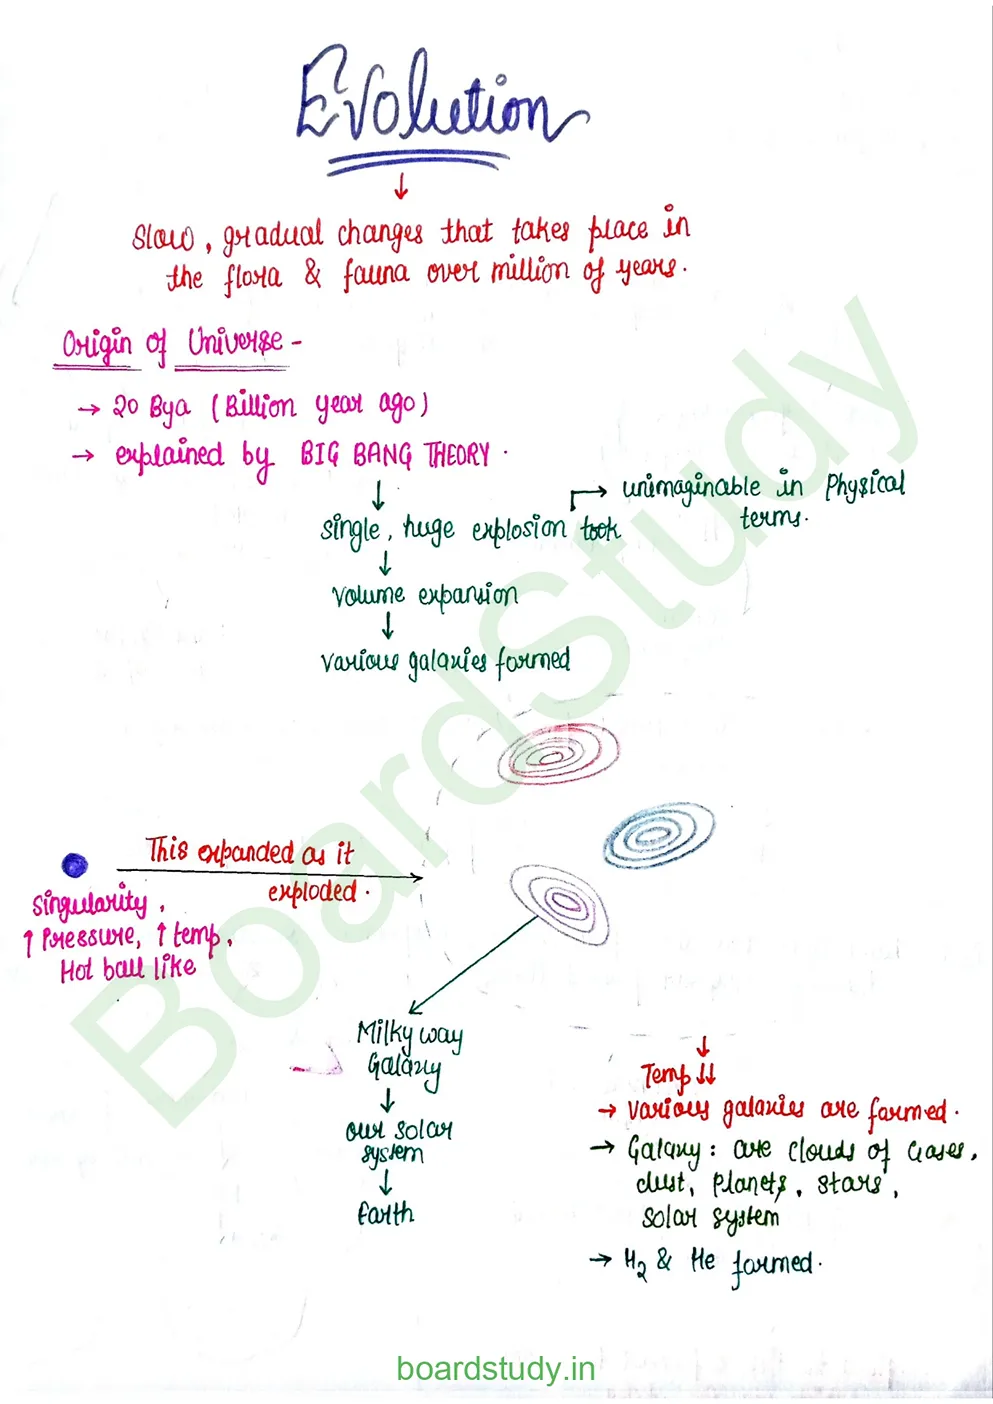 Evolution
↓
Slow, gradual changes that takes place in
the flora & fauna over million of years.
Origin of Universe -
→ 20 Bya (Billion year ago)
→ explained by BIG BANG THEORY.
↓
→ unimaginable in Physical
terms.
single, huge explosion took
↓
volume expansion
↓
various galaxies formed
This expanded as it
exploded.
Singularity,
↑ Pressure, ↑ temp,
Hot ball like
Milky way
Galaxy
↓
our solar
system
↓
Earth
↓
Temp ↓↓
→ various galaxies are formed.
→ Galaxy: are clouds of Gases,
dust, planets, stars,
solar system
→ H₂ & He formed.
BoardStudy
boardstudy.in